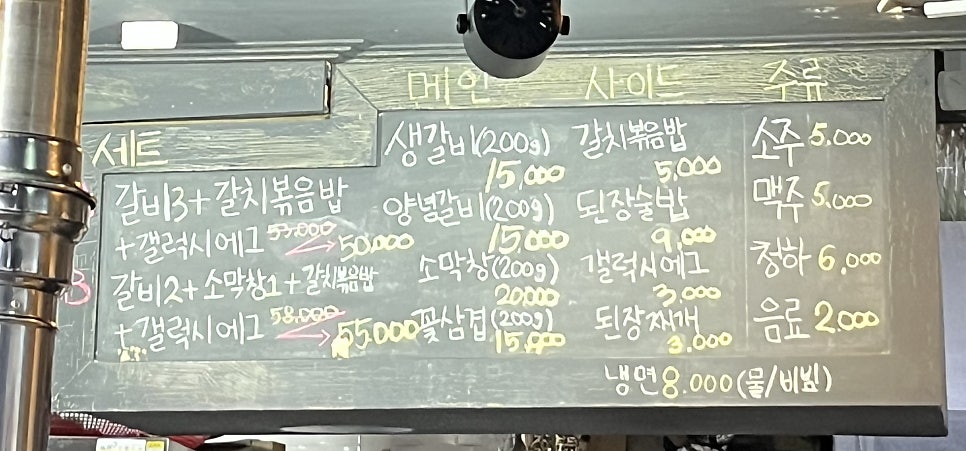 세트
갈비3+갈치볶음밥
+갤럭시에그 53,000
50,000
갈비2+소막창1+갈치볶음밥
+갤럭시에그 58,000
55,000
메인
생갈비(200g)
15,000
양념갈비(200g)
15,000
소막창(200g)
20,000
꽃삼겹(200g)
15,000
사이드
갈치볶음밥
5,000
된장술밥
9,000
갤럭시에그
3,000
된장찌개
3,000
냉면 8.000(물/비빔)
주류
소주 5,000
맥주 5,000
청하 6,000
음료 2,000